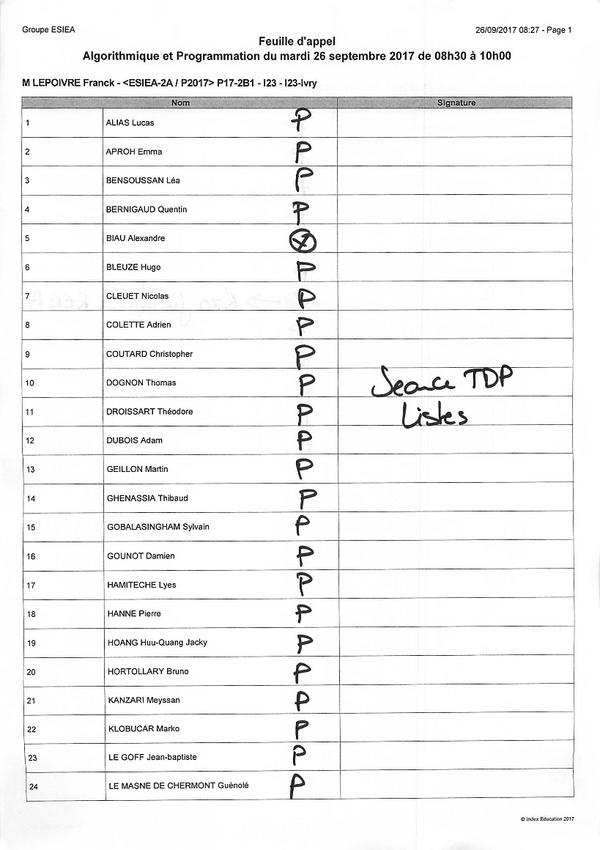 Groupe ESIEA 26/09/2017 08:27 - Page 1
Feuille d'appel
Algorithmique et Programmation du mardi 26 septembre 2017 de 08h30 à 10h00
M LEPOIVRE Franck - <ESIEA-2A / P2017> P17-2B1 - I23 - I23-Ivry
Nom Signature
1 ALIAS Lucas P
2 APROH Emma P
3 BENSOUSSAN Léa P
4 BERNIGAUD Quentin P
5 BIAU Alexandre
6 BLEUZE Hugo P
7 CLEUET Nicolas P
8 COLETTE Adrien P
9 COUTARD Christopher P
10 DOGNON Thomas P Seance TDP
11 DROISSART Théodore P Listes
12 DUBOIS Adam P
13 GEILLON Martin P
14 GHENASSIA Thibaud P
15 GOBALASINGHAM Sylvain P
16 GOUNOT Damien P
17 HAMITECHE Lyes P
18 HANNE Pierre P
19 HOANG Huu-Quang Jacky P
20 HORTOLLARY Bruno P
21 KANZARI Meyssan P
22 KLOBUCAR Marko P
23 LE GOFF Jean-baptiste P
24 LE MASNE DE CHERMONT Guénolé P
© Index Education 2017